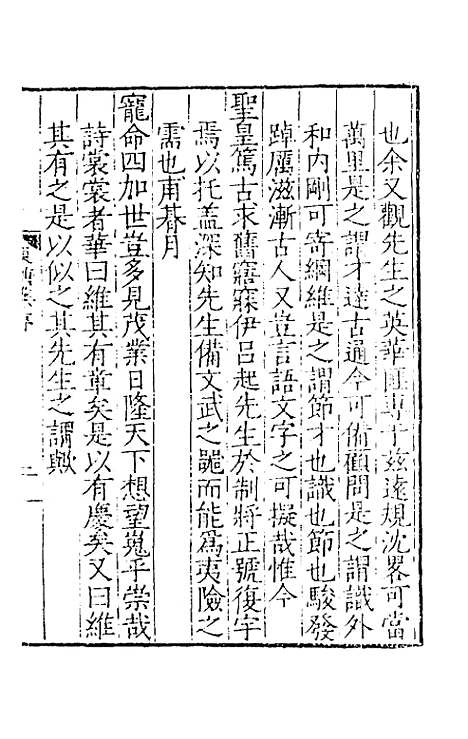 也余又觀先生之英華匪專于茲遠規沈畧可當
萬里是之謂才達古通今可備顧問是之謂識外
和內剛可寄綱維是之謂節才也識也節也駿發
踔厲滋漸古人又豈言語文字之可擬哉惟今
聖皇篤古求舊寤寐伊呂起先生於制將正號復字
焉以托蓋深知先生備文武之䟽而能爲夷險之
需也甫朞月
寵命四加世豈多見茂業日隆天下想望嵬乎崇哉
詩裳裳者華曰維其有章矣是以有慶矣又曰維
其有之是以似之其先生之謂歟